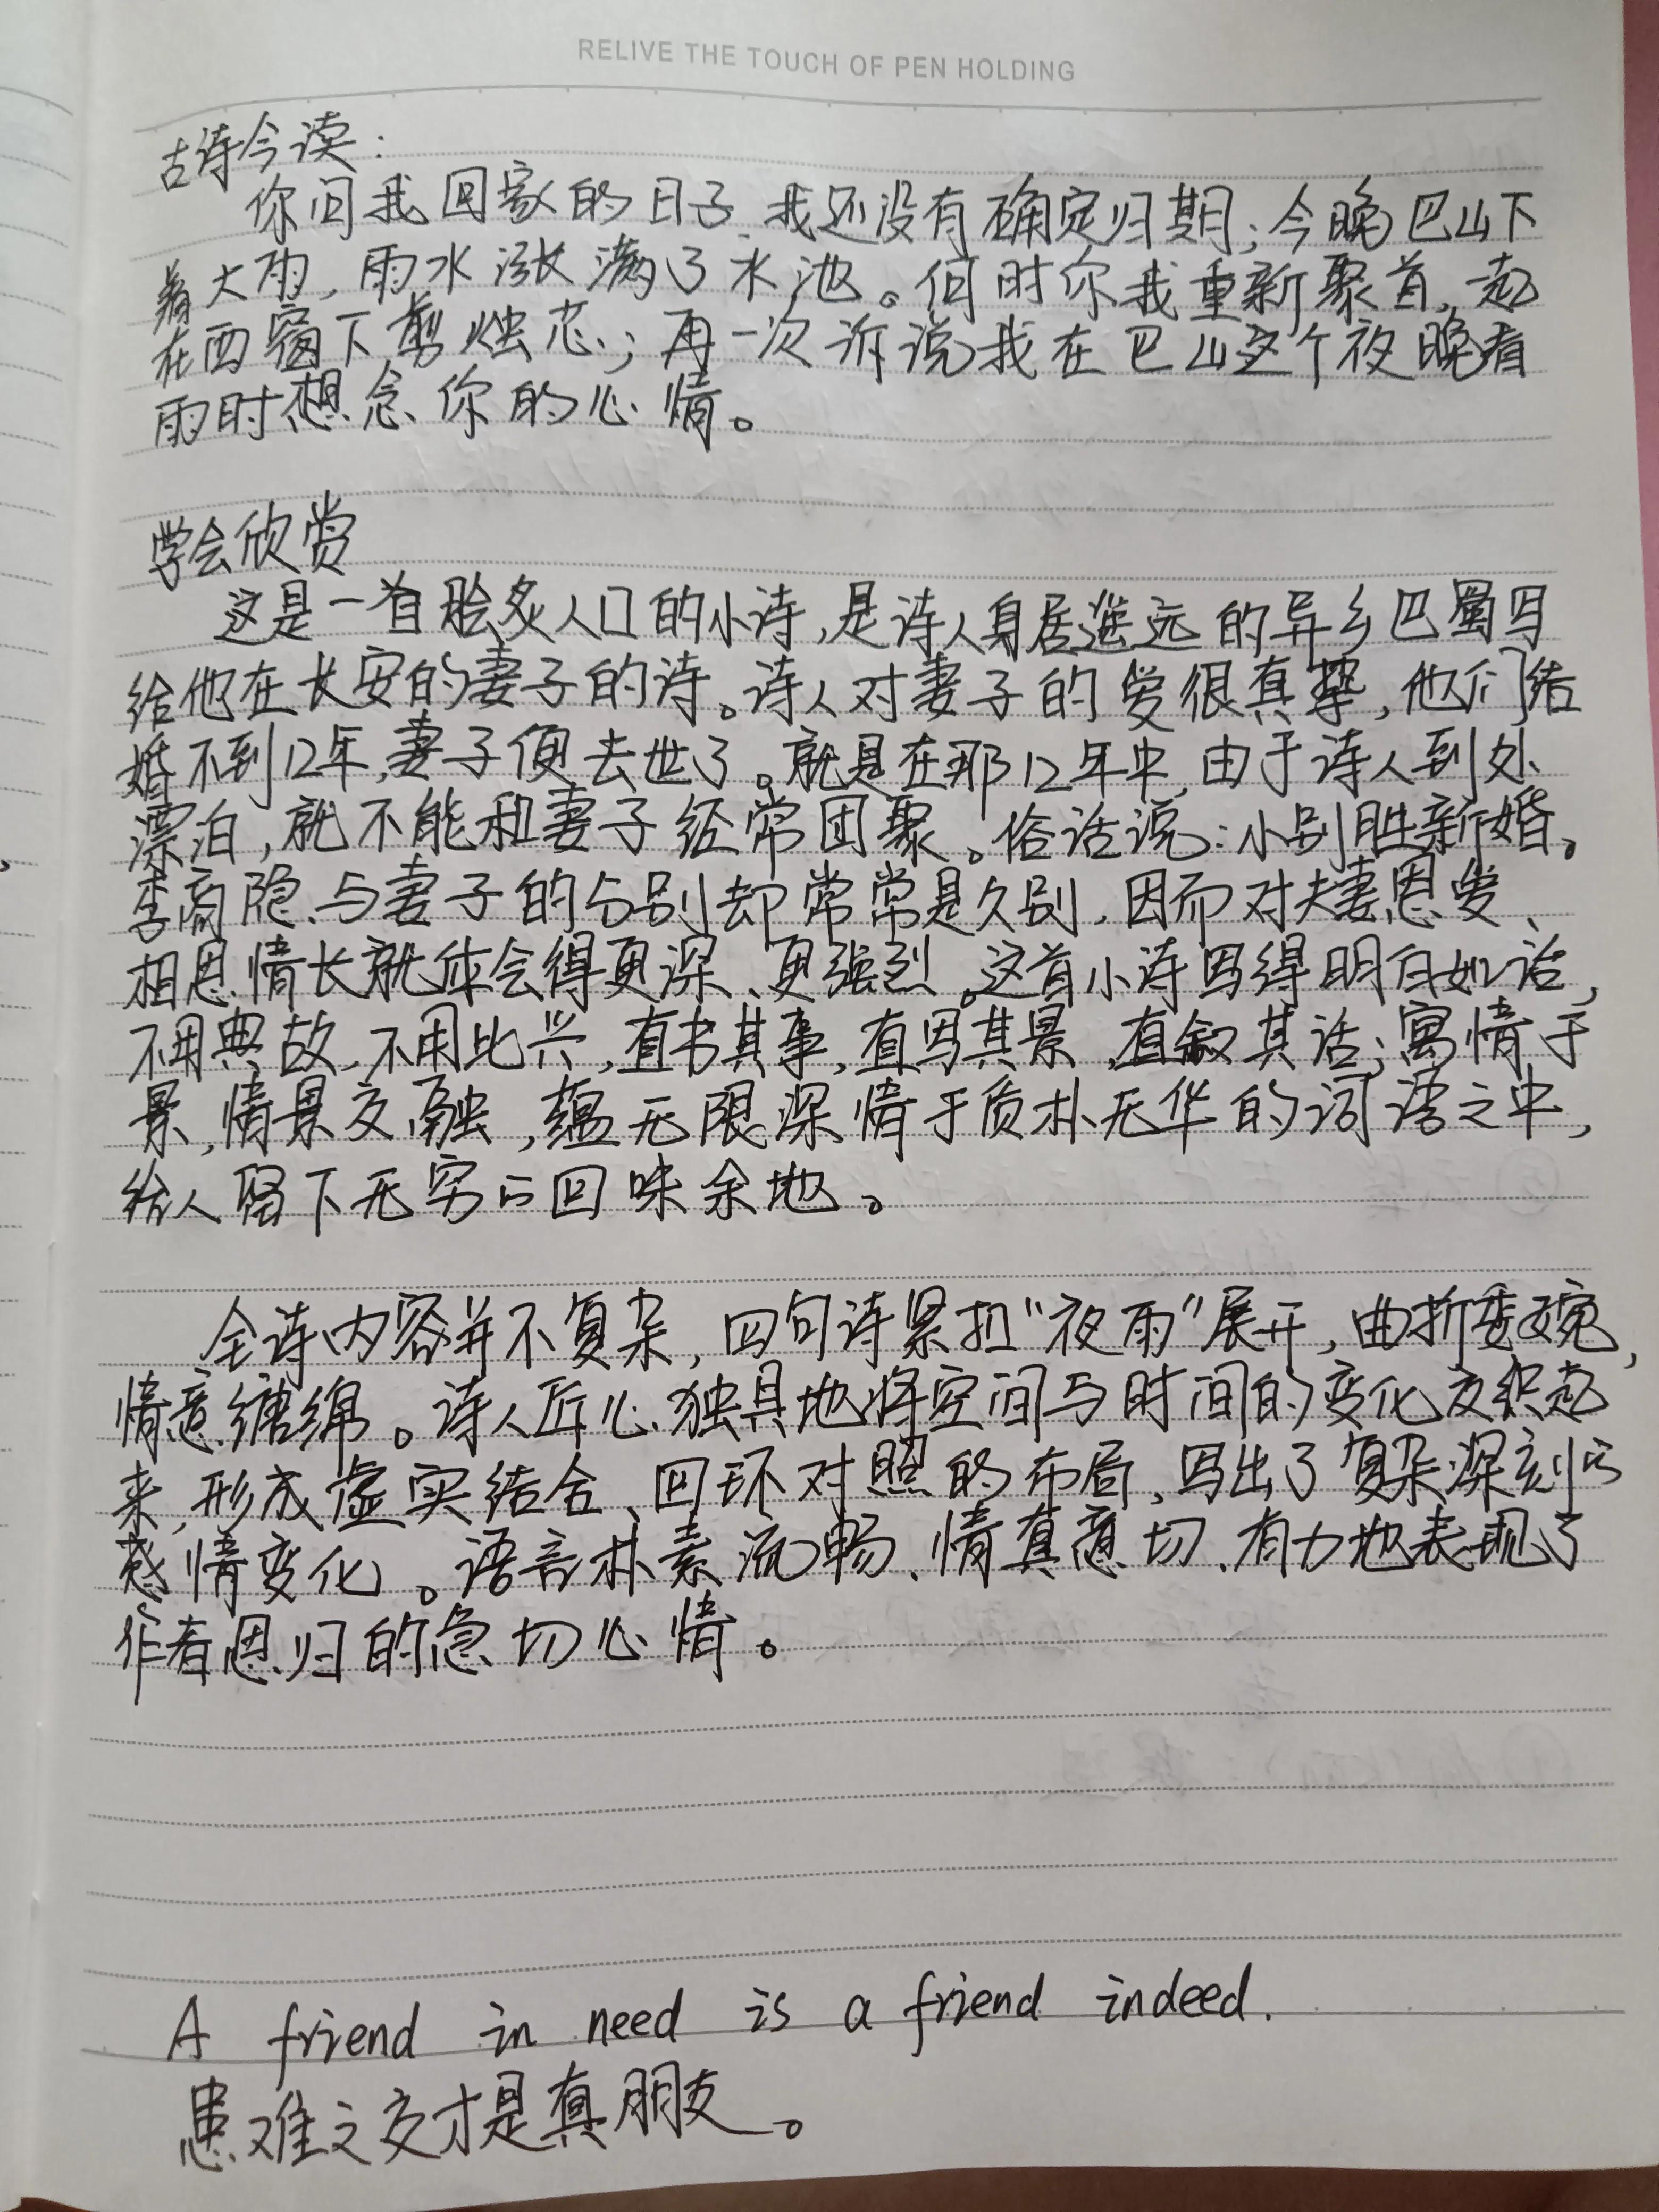 RELIVE THE TOUCH OF PEN HOLDING
古诗今读:
你问我回家的日子,我还没有确定归期;今晚巴山下
着大雨,雨水涨满了水池。何时你我重新聚首,一起
在西窗下剪烛芯;再一次诉说我在巴山这个夜晚看
雨时想念你的心情。
学会欣赏
这是一首脍炙人口的小诗,是诗人身居遥远的异乡巴蜀写
给他在长安的妻子的诗。诗人对妻子的爱很真挚,他们结
婚不到12年,妻子便去世了。就是在那12年中,由于诗人到处
漂泊,就不能和妻子经常团聚。俗话说:小别胜新婚。
李商隐与妻子的与别却常常是久别,因而对夫妻恩爱、
相思情长就体会得更深、更强烈。这首小诗写得明白如话,
不用典故,不用比兴,直书其事,直写其景,直叙其话;寓情于
景,情景交融,蕴无限深情于质朴无华的词语之中,
给人留下无穷的回味余地。
全诗内容并不复杂,四句诗紧扣“夜雨”展开,曲折委婉,
情意缠绵。诗人匠心独具地将空间与时间的变化交织起
来,形成虚实结合、回环对照的布局,写出了复杂深刻的
感情变化。语言朴素流畅、情真意切、有力地表现了
作者思归的急切心情。
A friend in need is a friend indeed.
患难之交才是真朋友。